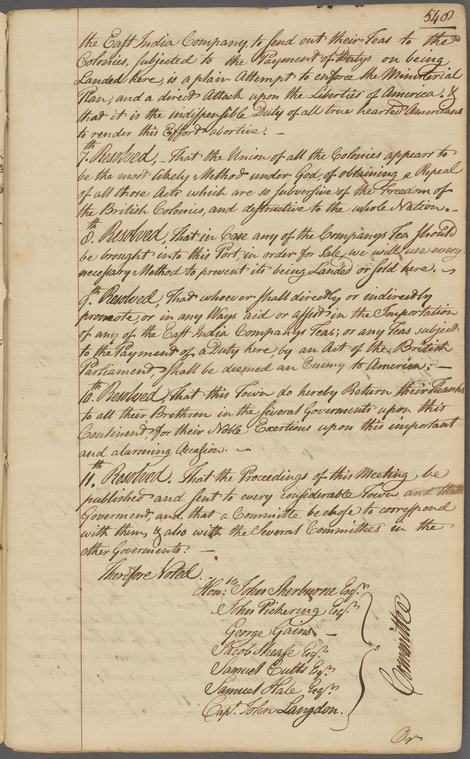 548
the East India Company, to send out their Teas to the
Colonies, subjected to the Payment of Dutys on being
Landed here, is a plain Attempt to enforce the Ministerial
Plan, and a direct Attack upon the Liberties of America. &
that it is the indispensible Duty of all true hearted Americans
to render this Effort abortive. —
7.th Resolved, – That the Union of all the Colonies appears to
be the most likely Method under God, of obtaining a Repeal
of all those Acts which are so subversive of the Freedom of
the British Colonies, and destructive to the whole Nation. –
8.th Resolved, That in Case any of the Companys Tea should
be brought into this Port, in order for Sale, we will use every
necessary Method to prevent its being Landed or sold here. ~
9.th Resolved, That whoever shall directly or indirectly
promote, or in any Ways aid or assist in the Importation
of any of the East India Companys Teas; or any Teas subject
to the Payment of a Duty here, by an Act of the British
Parliament, shall be deemed an Enemy to America; —
10.th Resolved, That this Town do hereby Return their Thanks
to all their Brethren in the several Goverments upon this
Continent, for their Noble Exertions upon this important
and alarming Occasion. —
11.th Resolved, That the Proceedings of this Meeting be
published and sent to every considerable Town and
Goverment, and that a Committe be chose to correspond
with them, & also with the Several Committees in the
other Goverments. —
Therefore Voted
Hon.ble John Sherburne Esq.r
John Pickering Esq.r
George Gains —
Jacob Sheafe Esq.r
Samuel Cutts Esq.r
Samuel Hale Esq.r
Cap.t John Langdon.
Committee
Or